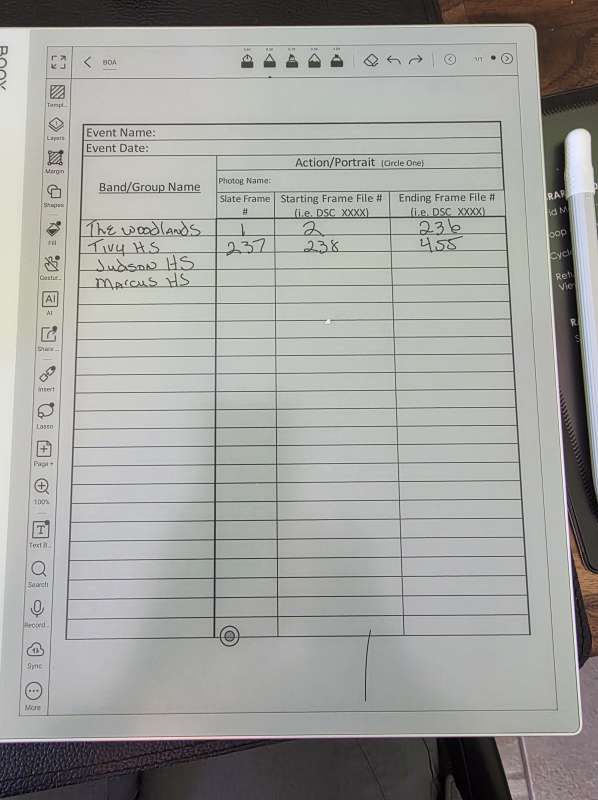 BOOX
BOA
1/1
Templ...
Layers
Margin
Shapes
Fill
Gestur...
AI
AI
Share ...
Insert
Lasso
Page +
100%
Text B...
Search
Record...
Sync
More
Event Name:
Event Date:
Action/Portrait (Circle One)
Band/Group Name
Photog Name:
Slate Frame # Starting Frame File # (i.e. DSC_XXXX) Ending Frame File # (i.e. DSC_XXXX)
The Woodlands 1 2 236
Tivy HS 237 238 455
Judson HS
Marcus HS